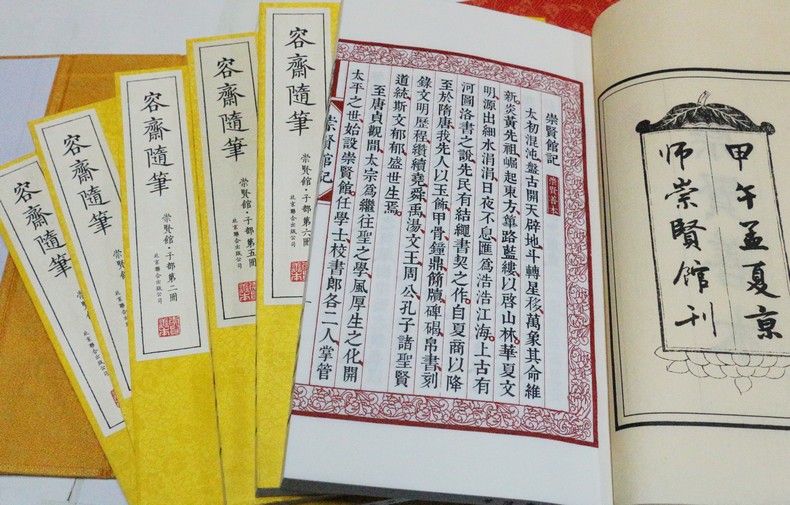 容齋隨筆
容齋隨筆
崇賢
容齋隨筆
崇賢館·子部第二冊
北京聯合出版公司
容齋隨筆
崇賢館·子部第五冊
北京聯合出版公司
容齋隨筆
崇賢館·子部第六冊
北京聯合出版公司
崇賢館記 崇賢善本
太初混沌,盤古開天辟地,斗轉星移,萬象其命維
新。炎黃先祖崛起東方,篳路藍縷以啓山林。華夏文
明源出細水涓涓,日夜不息,匯爲浩浩江海。上古有
河圖洛書之說,先民有結繩書契之作。自夏商以降
至於隋唐,我先人以玉飾甲骨鐘鼎簡牘碑碣帛書刻
錄文明歷程,繼續堯舜禹湯文王周公孔子諸聖賢
道統,斯文郁郁,盛世生焉。
至唐貞觀間,太宗爲繼往聖之學,風厚生之化,開
太平之世,始設崇賢館,任學士、校書郎各二人,掌管
崇賢館記
甲午孟夏京
師崇賢館刊